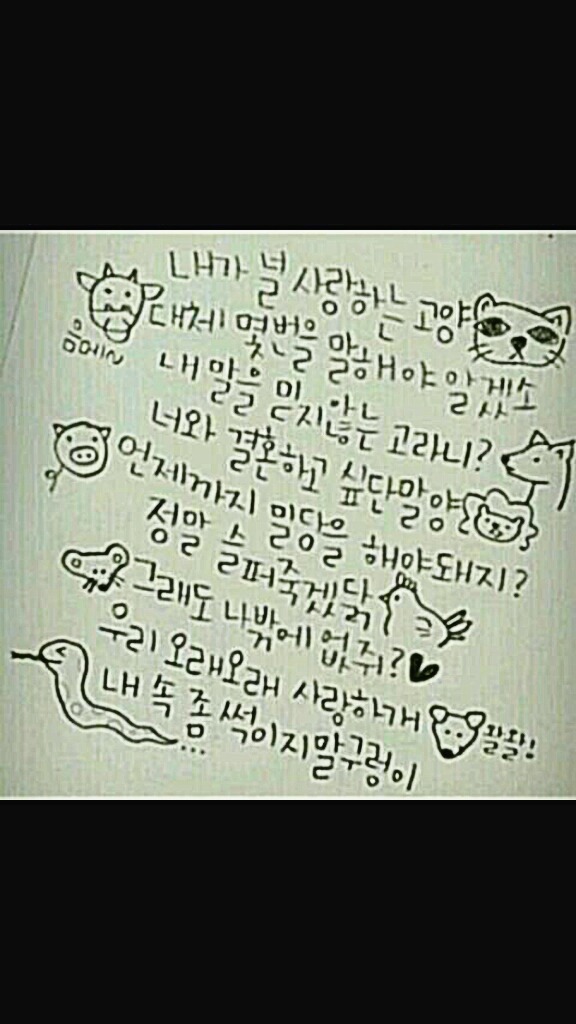 내가 널 사랑하는 고양
대체 몇번을 말해야 알겠소
음메~
내 말을 믿지않는 고라니?
너와 결혼하고 싶단말양
언제까지 밀당을 해야돼지?
정말 슬퍼죽겠닭
그래도 나밖에 없쥐?
우리 오래오래 사랑하개
왈왈!
내 속 좀 썩이지말구렁이
...